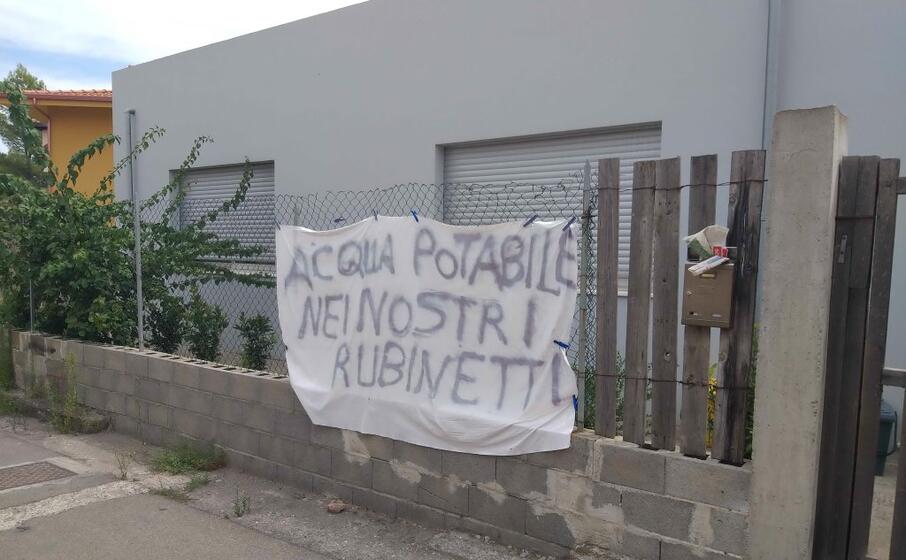 ACQUA POTABILE
NEI NOSTRI
RUBINETTI